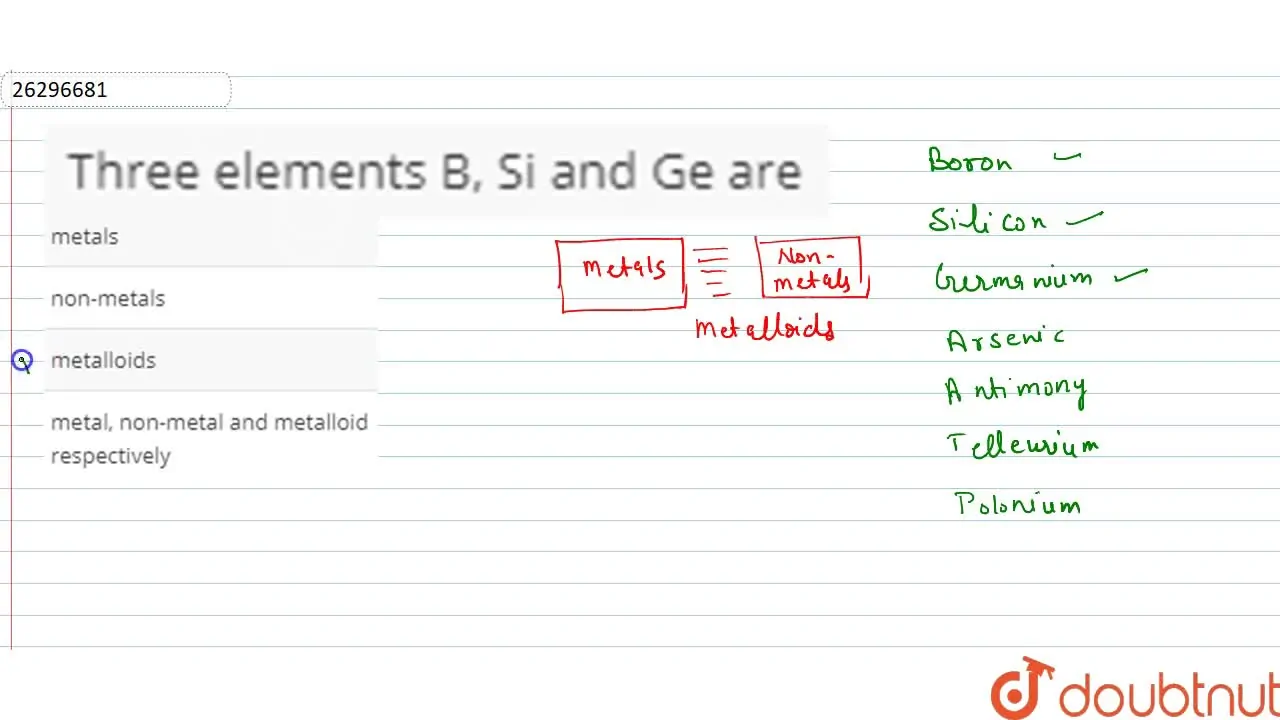 26296681
Three elements B, Si and Ge are
metals
non-metals
metalloids
metal, non-metal and metalloid
respectively
Metals
Non-
metals
Metalloids
Boron
Silicon
Germanium
Arsenic
Antimony
Telleurium
Polonium
doubtnut